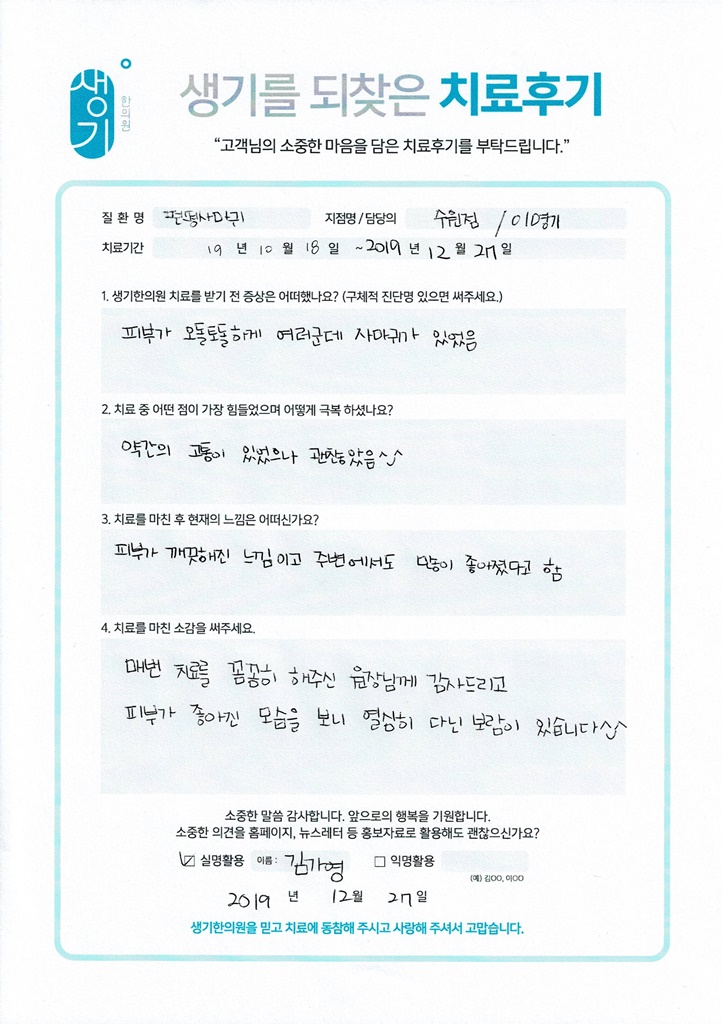 생기
한의원
생기를 되찾은 치료후기
“고객님의 소중한 마음을 담은 치료후기를 부탁드립니다.”
질 환 명 편평사마귀 지점명 / 담당의 수원점 / 이경기
치료기간 19 년 10 월 18 일 ~ 2019 년 12 월 27 일
1. 생기한의원 치료를 받기 전 증상은 어떠했나요? (구체적 진단명 있으면 써주세요.)
피부가 오돌토돌하게 여러군데 사마귀가 있었음
2. 치료 중 어떤 점이 가장 힘들었으며 어떻게 극복 하셨나요?
약간의 고통이 있었으나 괜찮았음^^
3. 치료를 마친 후 현재의 느낌은 어떠신가요?
피부가 깨끗해진 느낌이고 주변에서도 많이 좋아졌다고 함
4. 치료를 마친 소감을 써주세요.
매번 치료를 꼼꼼히 해주신 원장님께 감사드리고
피부가 좋아진 모습을 보니 열심히 다닌 보람이 있습니다^^
소중한 말씀 감사합니다. 앞으로의 행복을 기원합니다.
소중한 의견을 홈페이지, 뉴스레터 등 홍보자료로 활용해도 괜찮으신가요?
☑ 실명활용 이름 : 김가영 □ 익명활용
(예) 김OO, 이OO
2019 년 12월 27일
생기한의원을 믿고 치료에 동참해 주시고 사랑해 주셔서 고맙습니다.